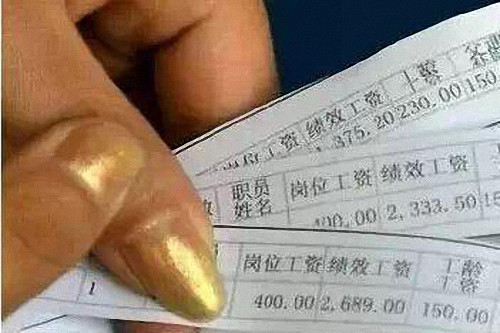 岗位工资 绩效工资 工龄
375.20 230.00 150
职员姓名 岗位工资 绩效工资
400.00 2,333.50 15
岗位工资 绩效工资 工龄工资
1 400.00 2,689.00 150.00